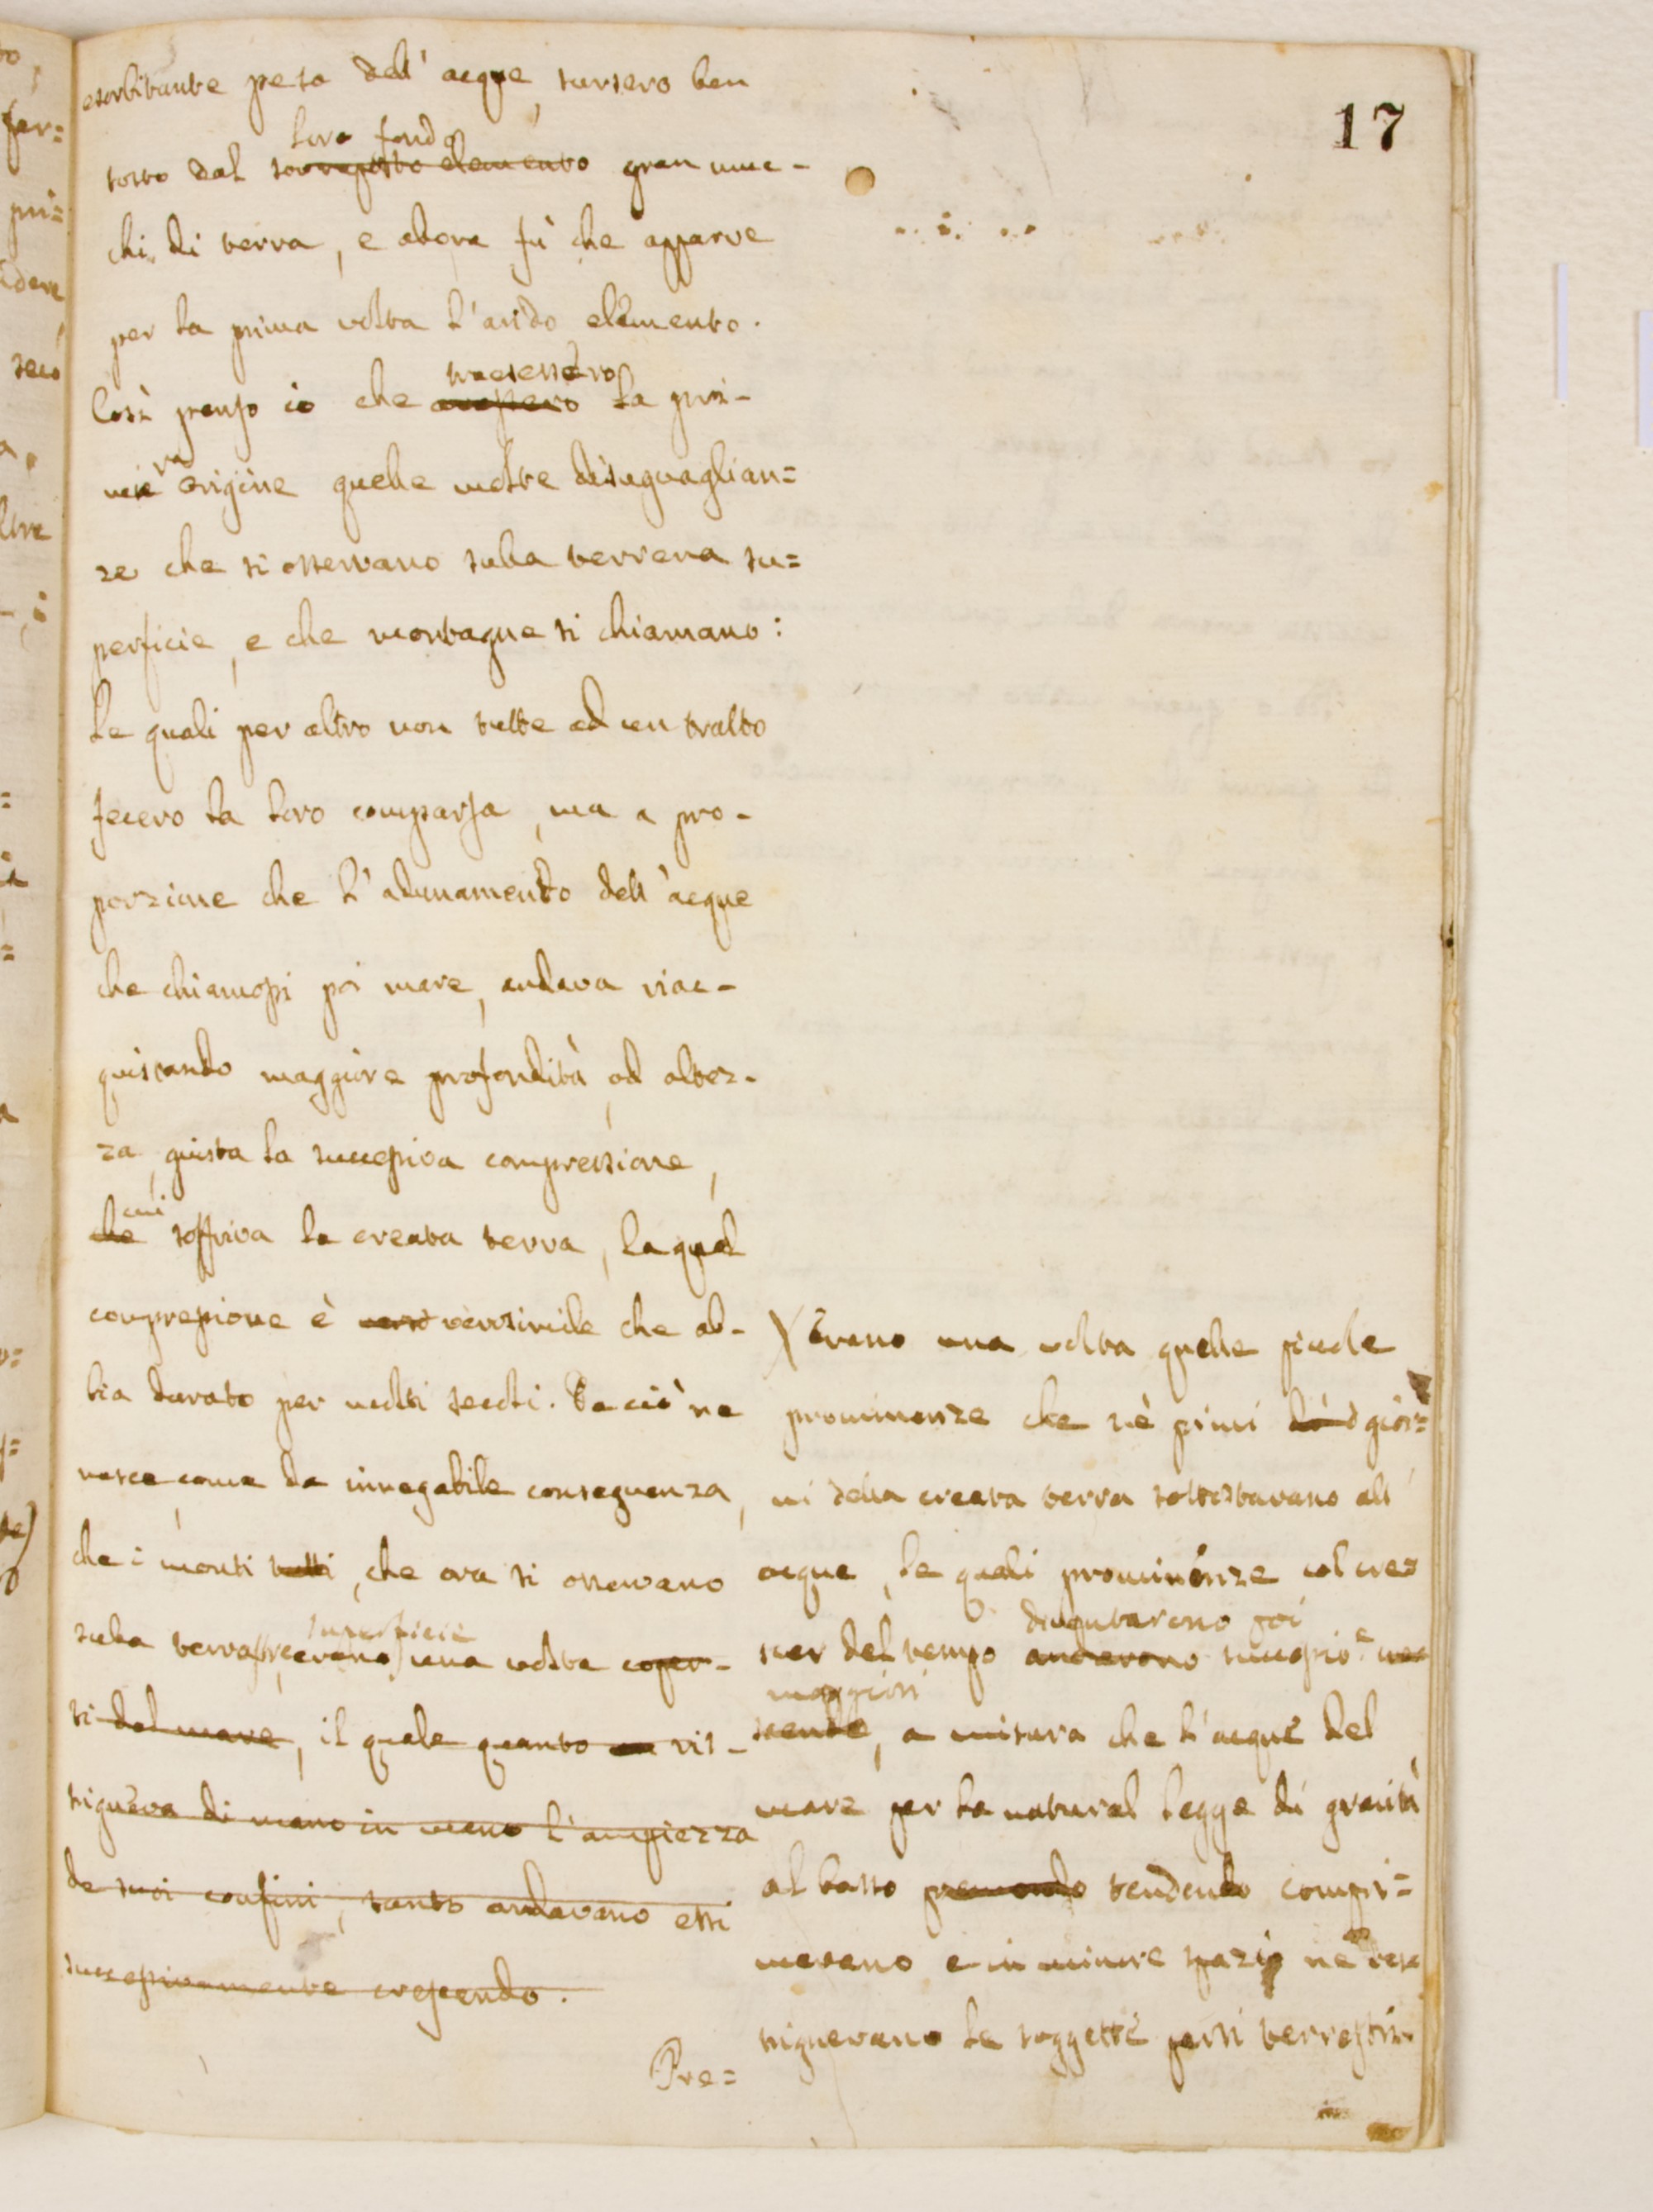 17
esorbitante peso dell' acque, sursero ben
loro fondo
tosto dal sovraposto elemento gran muc-
chi di terra, e allora fù che apparve
per la prima volta l'arido elemento.
traessero
Così penso io che avessero la pri-
va
miera origine quelle molte disuguaglian=
ze che si osservano sulla terrena su=
perficie, e che montagne si chiamano:
Le quali per altro non tutte ad un tratto
fecero la loro comparsa, ma a pro-
porzione che l'adunamento dell'acque
che chiamossi poi mare, andava riac-
quistando maggiore profondità, ed altez-
za, giusta la successiva compressione,
cui
che soffriva la creata terra, la qual
compressione è verisimile che ab-
bia durato per molti secoli. Da ciò ne
nasce come da innegabile conseguenza,
che i monti tutti, che ora si osservano
superficie
sulla terrestre erano una volta coper-
ti dal mare, il quale quanto ris-
trigneva di mano in mano l'ampiezza
de suoi confini, tanto andavano essi
successivamente crescendo.
Pre=
X Erano una volta quelle picole
prominenze che nè primi giòr=
ni della creata terra sottostavano all'
acque, le quali prominenze col cres
diventarono poi
scer del tempo andarono
maggiori
scendo, a misura che l'acque del
mare per la natural legge di gravità
al basso premendo tendendo compri=
mevano e in minore spazio ne res
trignevano le soggette parti terrestri.